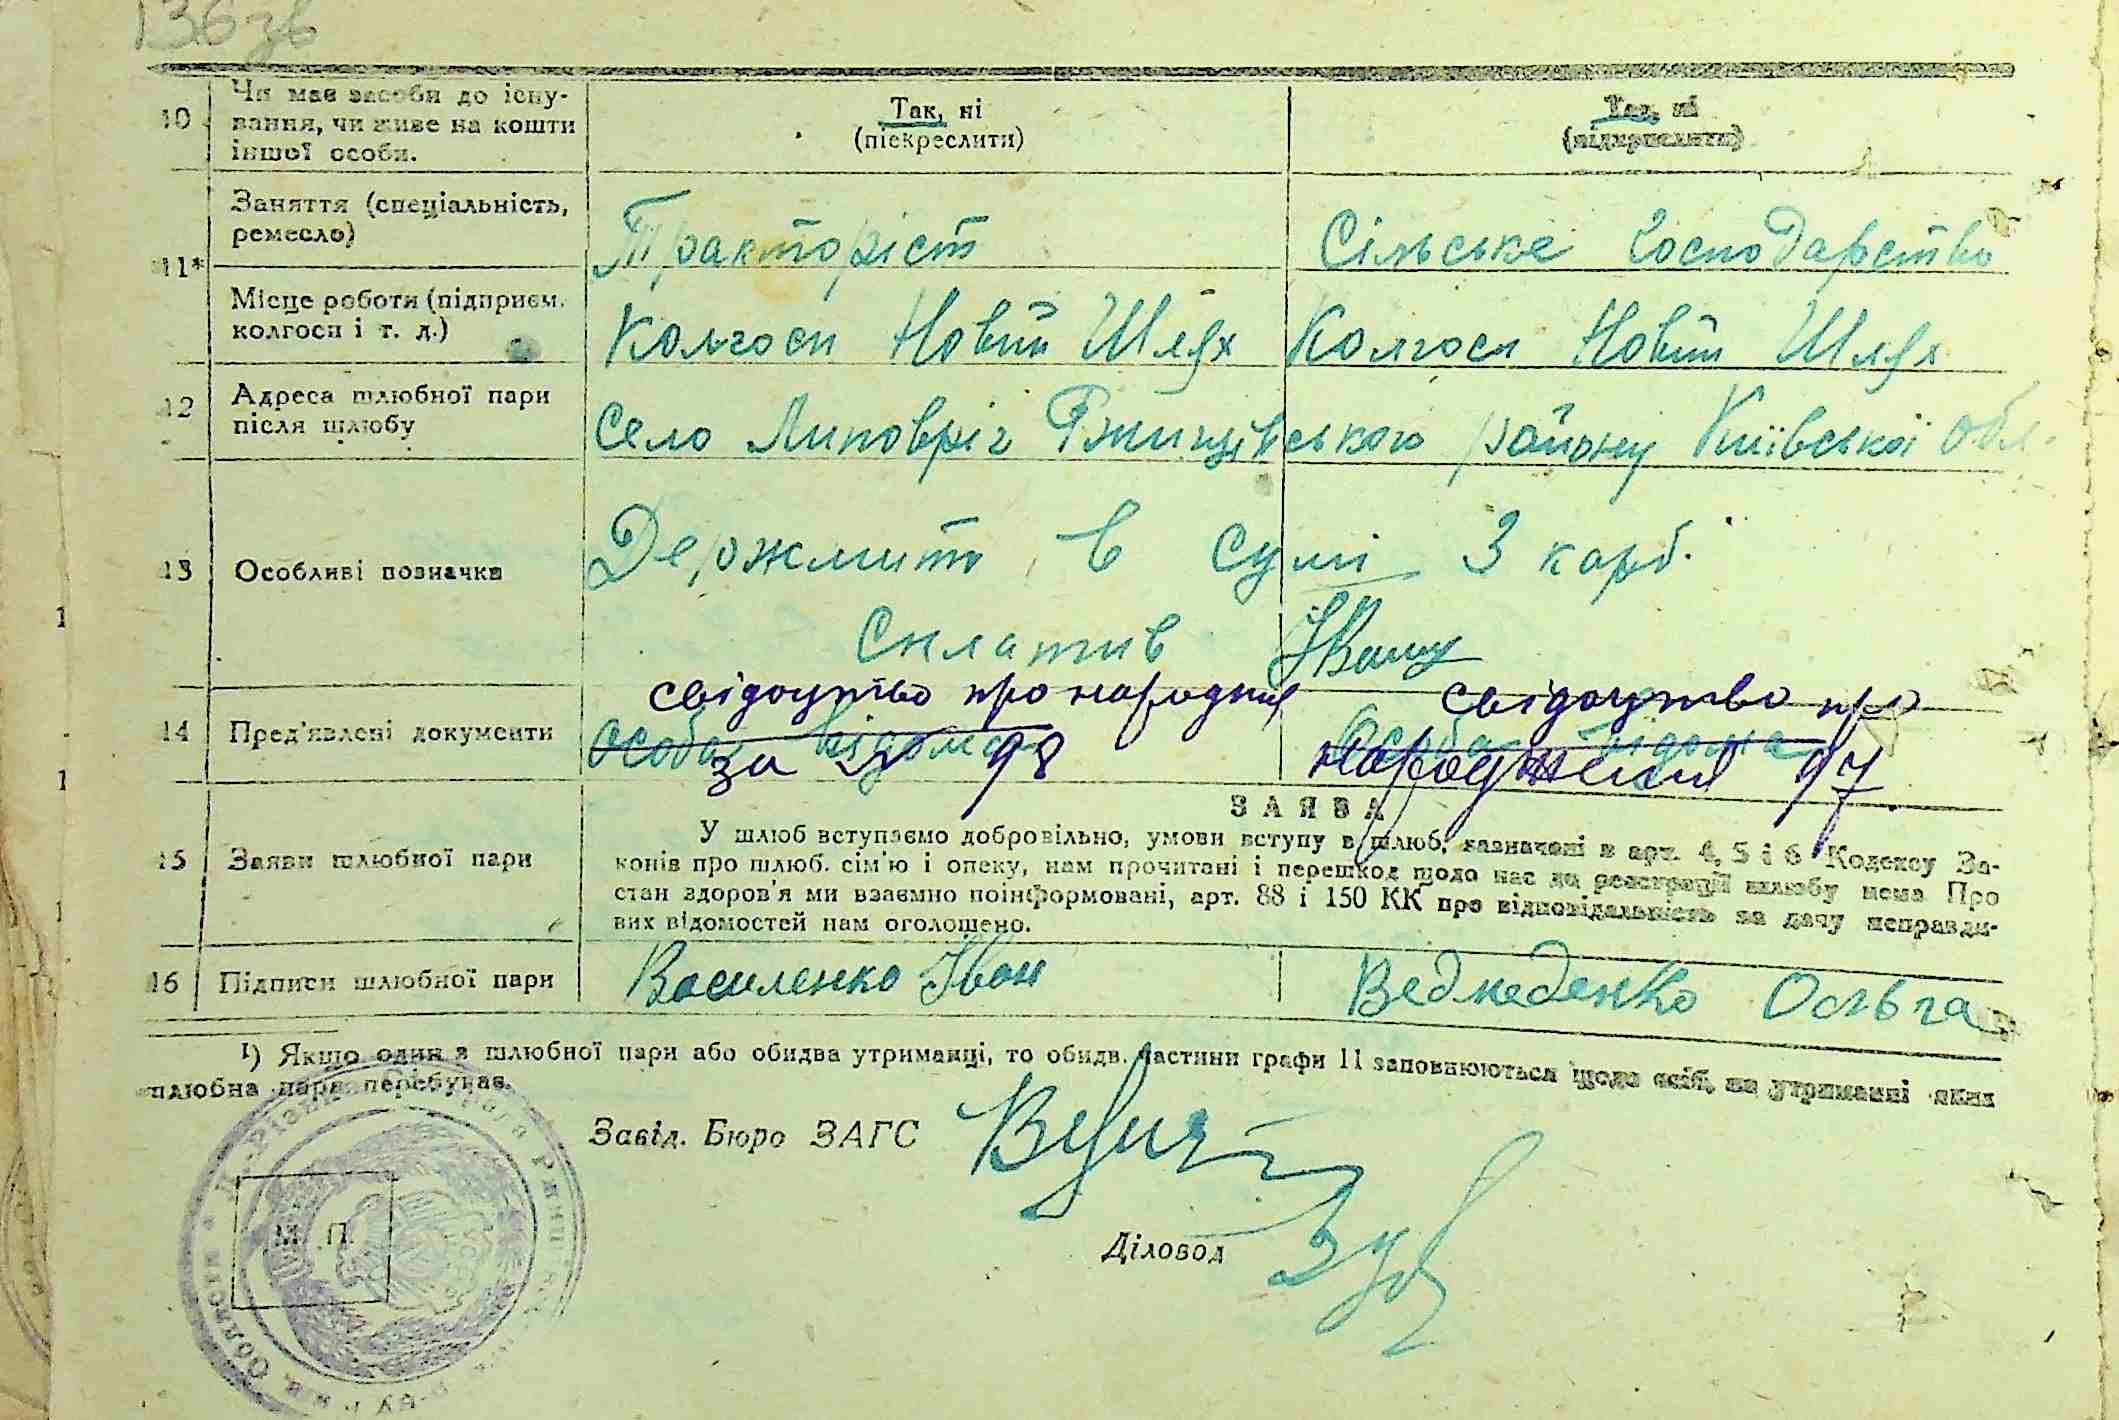 136 зв
10
Чи має засоби до існу-
вання, чи живе на кошти
іншої особи.
Так, ні
(піскреслити)
Так, ні
(підкреслити)
11*
Заняття (спеціальність,
ремесло)
Тракторіст
Сільське Господарство
Місце роботи (підприєм.
колгосп і т. д.)
Колгосп Новий Шлях
Колгосп Новий Шлях
12
Адреса шлюбної пари
після шлюбу
Село Липовріг Ржищівського району Київської Обл.
13
Особливі позначки
Держмито в сумі 3 карб.
Сплатив
14
Пред'явлені документи
свідоцтво про народжня
Особа відома
за № 98
свідоцтво про
Особа відома
народження 97
15
Заяви шлюбної пари
ЗАЯВА
У шлюб вступаємо добровільно, умови вступу в шлюб, зазначені в арт. 4, 5 і 6 Кодексу За-
конів про шлюб. сім'ю і опеку, нам прочитані і перешкод щодо нас до реєстрації шлюбу нема Про
стан здоров'я ми взаємно поінформовані, арт. 88 і 150 КК про відповідальність за дачу неправди-
вих відомостей нам оголошено.
16
Підписи шлюбної пари
Василенко Іван
Ведмеденко Ольга
1) Якщо один з шлюбної пари або обидва утриманці, то обидв. частини графи 11 заповнюються щодо осіб, на утриманні яких
шлюбна пара перебуває.
Завід. Бюро ЗАГС
М. П.
Діловод
Зуб